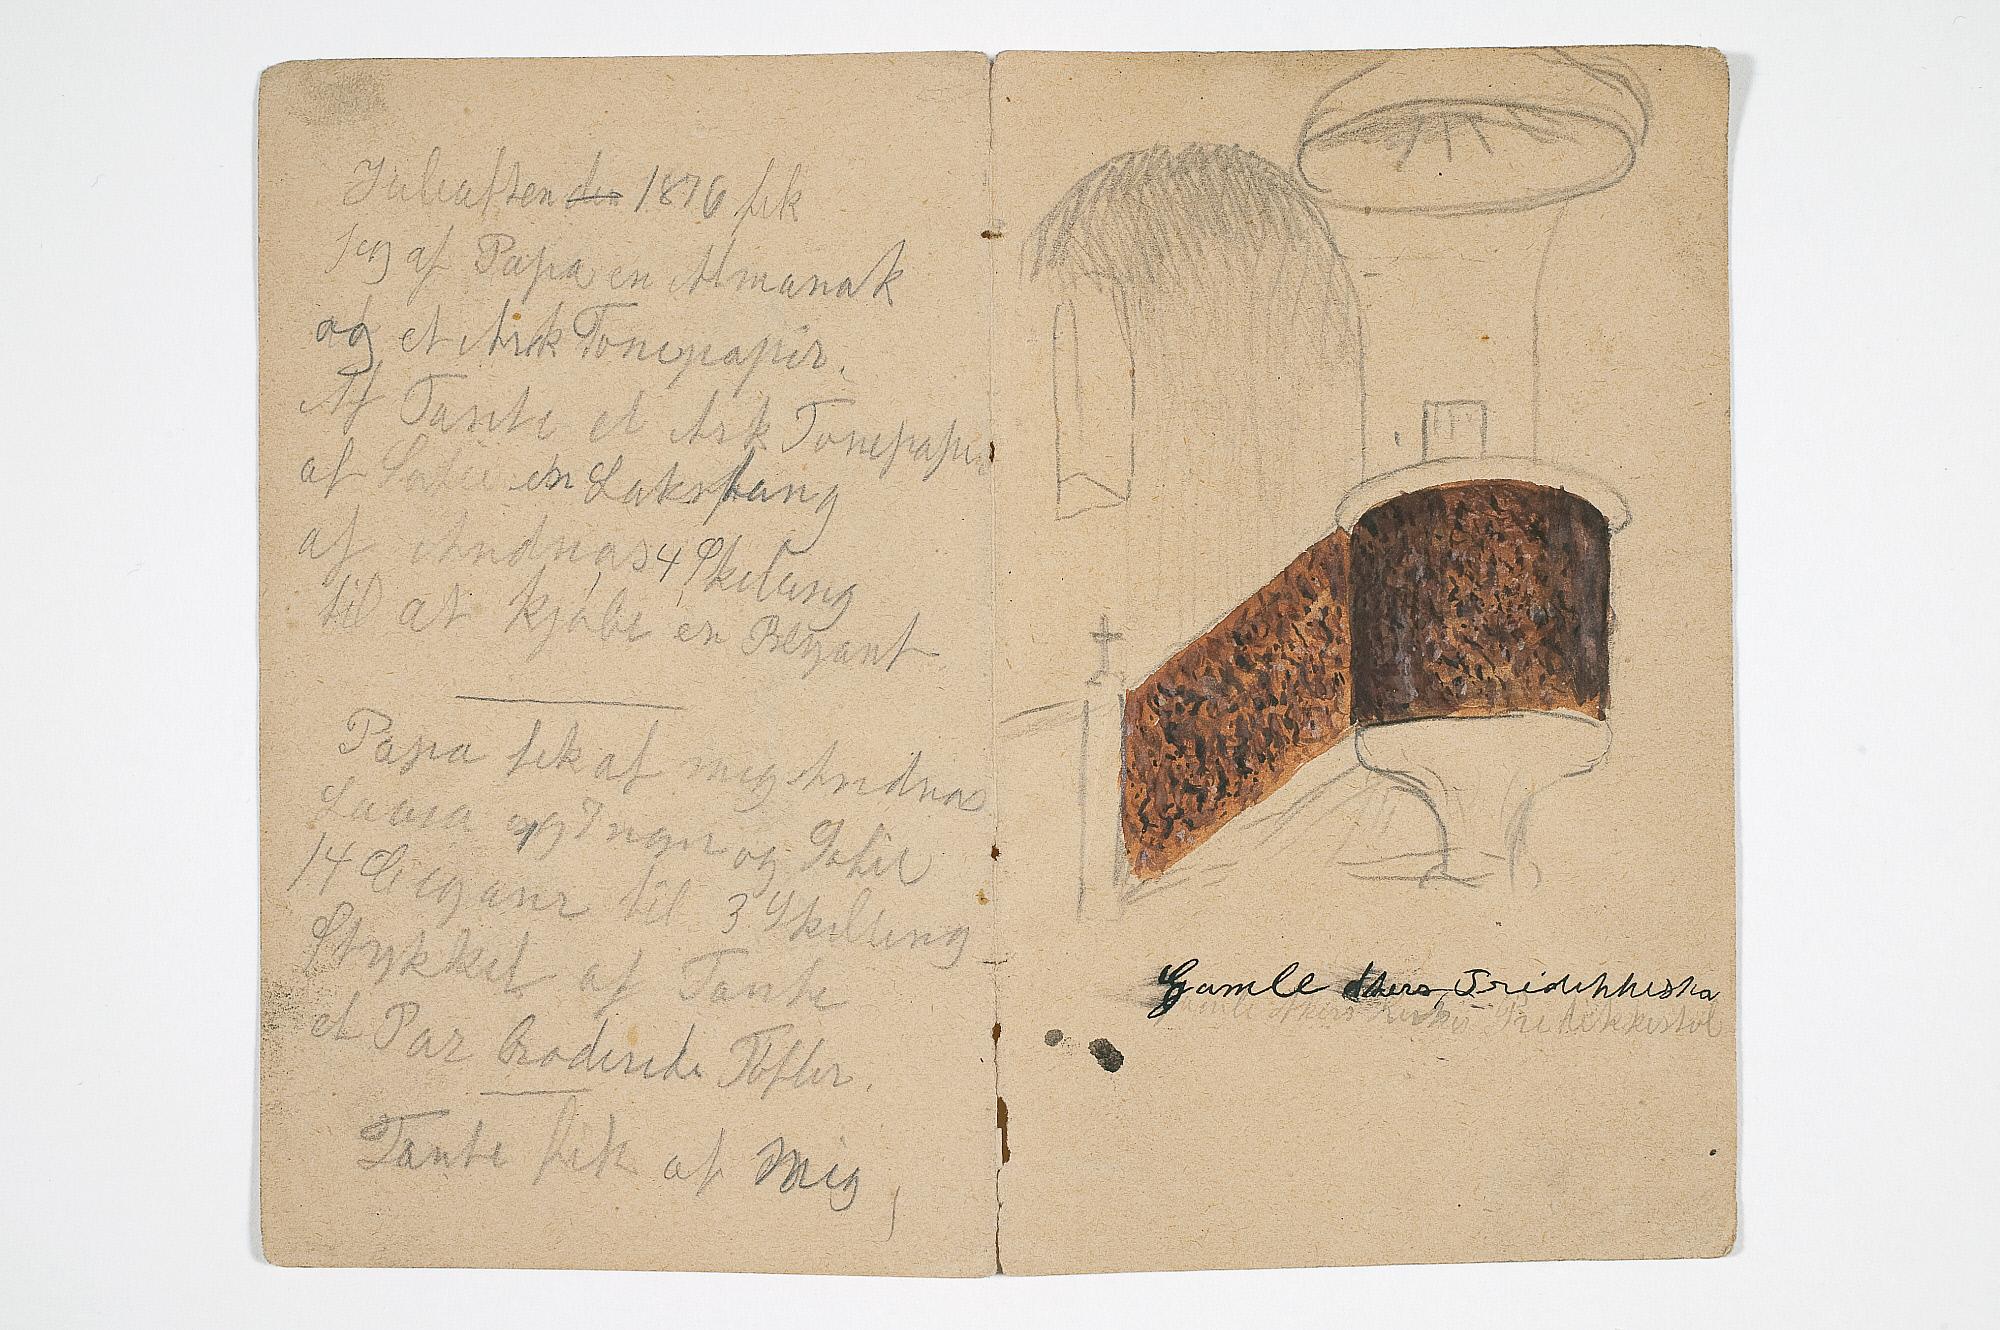 Juleaften den 1876 fik
jeg af Papa en Almanak
og et Ark Tonepapir.
Af Tante et Ark Tonepapir
af Sofie en Lakstang
af Andreas 4 Skiling
til at kjøbe en Blyant
Papa fik af mig Andreas
Laura og Inger og Sofie
14 Cigarer til 3 Skilling
Stykket af Tante
et Par Broderede Tøfler.
Tante fik af Mig
Gamle Akers
Gamle Akers Kirke